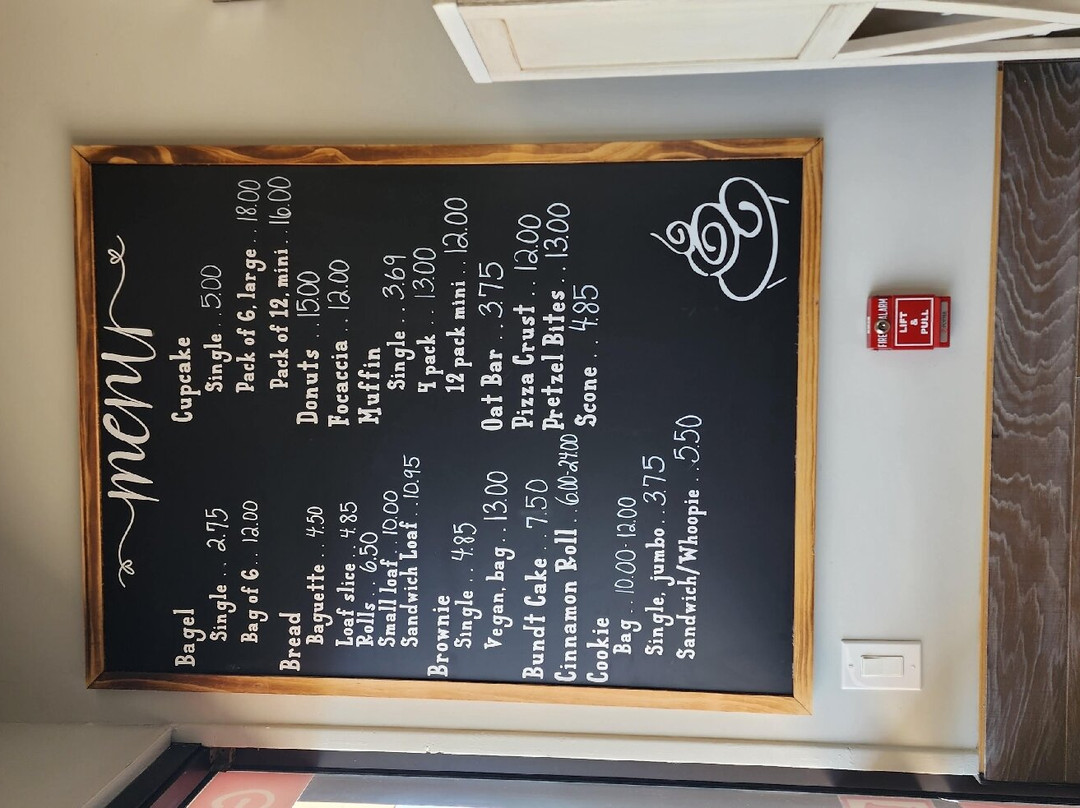 menu
Bagel
Single... 2.75
Bag of 6... 12.00
Bread
Baguette... 4.50
Loaf slice... 4.85
Rolls... 6.50
Small loaf... 10.00
Sandwich Loaf... 10.95
Brownie
Single... 4.85
Vegan, bag... 13.00
Bundt Cake... 7.50
Cinnamon Roll... 6.00-24.00
Cookie
Bag... 10.00-12.00
Single, jumbo... 3.75
Sandwich/Whoopie... 5.50
Cupcake
Single... 5.00
Pack of 6, large... 18.00
Pack of 12, mini... 16.00
Donuts... 15.00
Focaccia... 12.00
Muffin
Single... 3.69
4 pack... 13.00
12 pack mini... 12.00
Oat Bar... 3.75
Pizza Crust... 12.00
Pretzel Bites... 13.00
Scone... 4.85
FIRE ALARM
LIFT
&
PULL